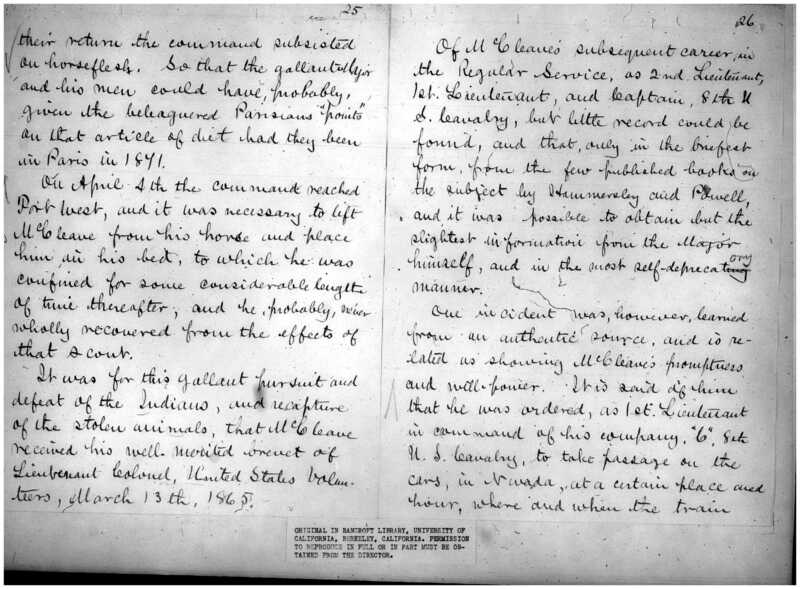 25
their return the command subsisted
on horseflesh. So that the gallant Major
and his men could have, probably,
given the beleaguered Parisians "points"
on that article of diet had they been
in Paris in 1871.
On April 4th the command reached
Fort West, and it was necessary to lift
McCleave from his horse and place
him in his bed, to which he was
confined for some considerable length
of time thereafter, and he, probably, never
wholly recovered from the effects of
that scout.
It was for this gallant pursuit and
defeat of the Indians, and recapture
of the stolen animals, that McCleave
received his well-merited brevet of
Lieutenant Colonel, United States Volun-
teers, March 13th, 1865.
26
Of McCleave's subsequent career, in
the Regular Service, as 2nd. Lieutenant,
1st. Lieutenant, and Captain, 8th U
S. Cavalry, but little record could be
found, and that, only in the briefest
form, from the few published books on
the subject by Hammersley and Powell,
and it was possible to obtain but the
slightest information from the Major
himself, and in the most self-deprecatory
manner.
One incident was, however, learned
from an authentic source, and is re-
lated as showing McCleave's promptness
and will-power. It is said of him
that he was ordered, as 1st. Lieutenant
in command of his company, "C", 8th
U. S. Cavalry, to take passage on the
cars, in Nevada, at a certain place and
hour, where and when the train
ORIGINAL IN BANCROFT LIBRARY, UNIVERSITY OF
CALIFORNIA, BERKELEY, CALIFORNIA. PERMISSION
TO REPRODUCE IN FULL OR IN PART MUST BE OB-
TAINED FROM THE DIRECTOR.